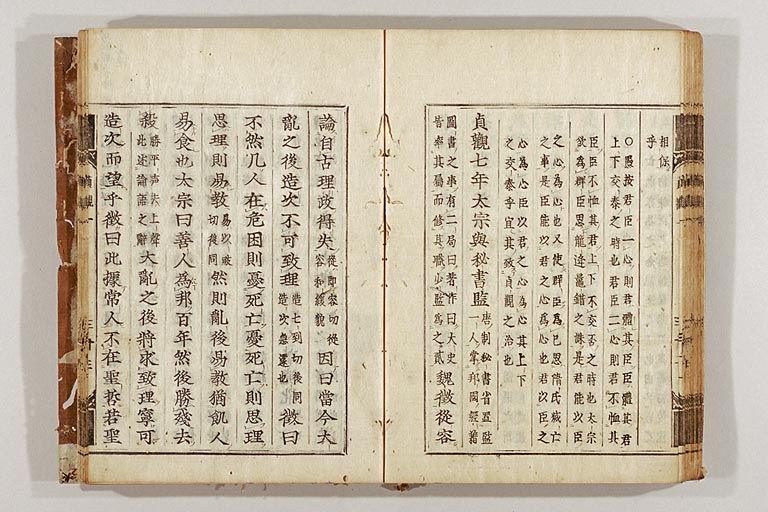 相保
乎
○愚按君臣一心則君體其臣臣體其君
上下交泰之時也君臣二心則君不恤其
臣臣不恤其君上下不交否之時也太宗
欲爲群臣思龍逄鼂錯之誅是君能以臣
之心爲心也又使群臣爲己思隋氏滅亡
之事是臣能以君之心爲心也君以臣之
心爲心臣以君之心爲心其上下
之交泰乎宜其致貞觀之治也
貞觀七年太宗與秘書監唐制秘書省置監一人掌邦國經籍
圖書之事有二局曰著作曰太史皆率其屬而修其職少監爲之貳魏徵從容
論自古理政得失從卽容切從容和緩貌因曰當今大
亂之後造次不可致理造七到切後同造次急遽也徵曰
不然凡人在危困則憂死亡憂死亡則思理
思理則易敎易以豉切後同然則亂後易敎猶飢人
易食也太宗曰善人爲邦百年然後勝殘去
殺勝平声去上聲此述論語之辭大亂之後將求致理寧可
造次而望乎徵曰此據常人不在聖哲若聖